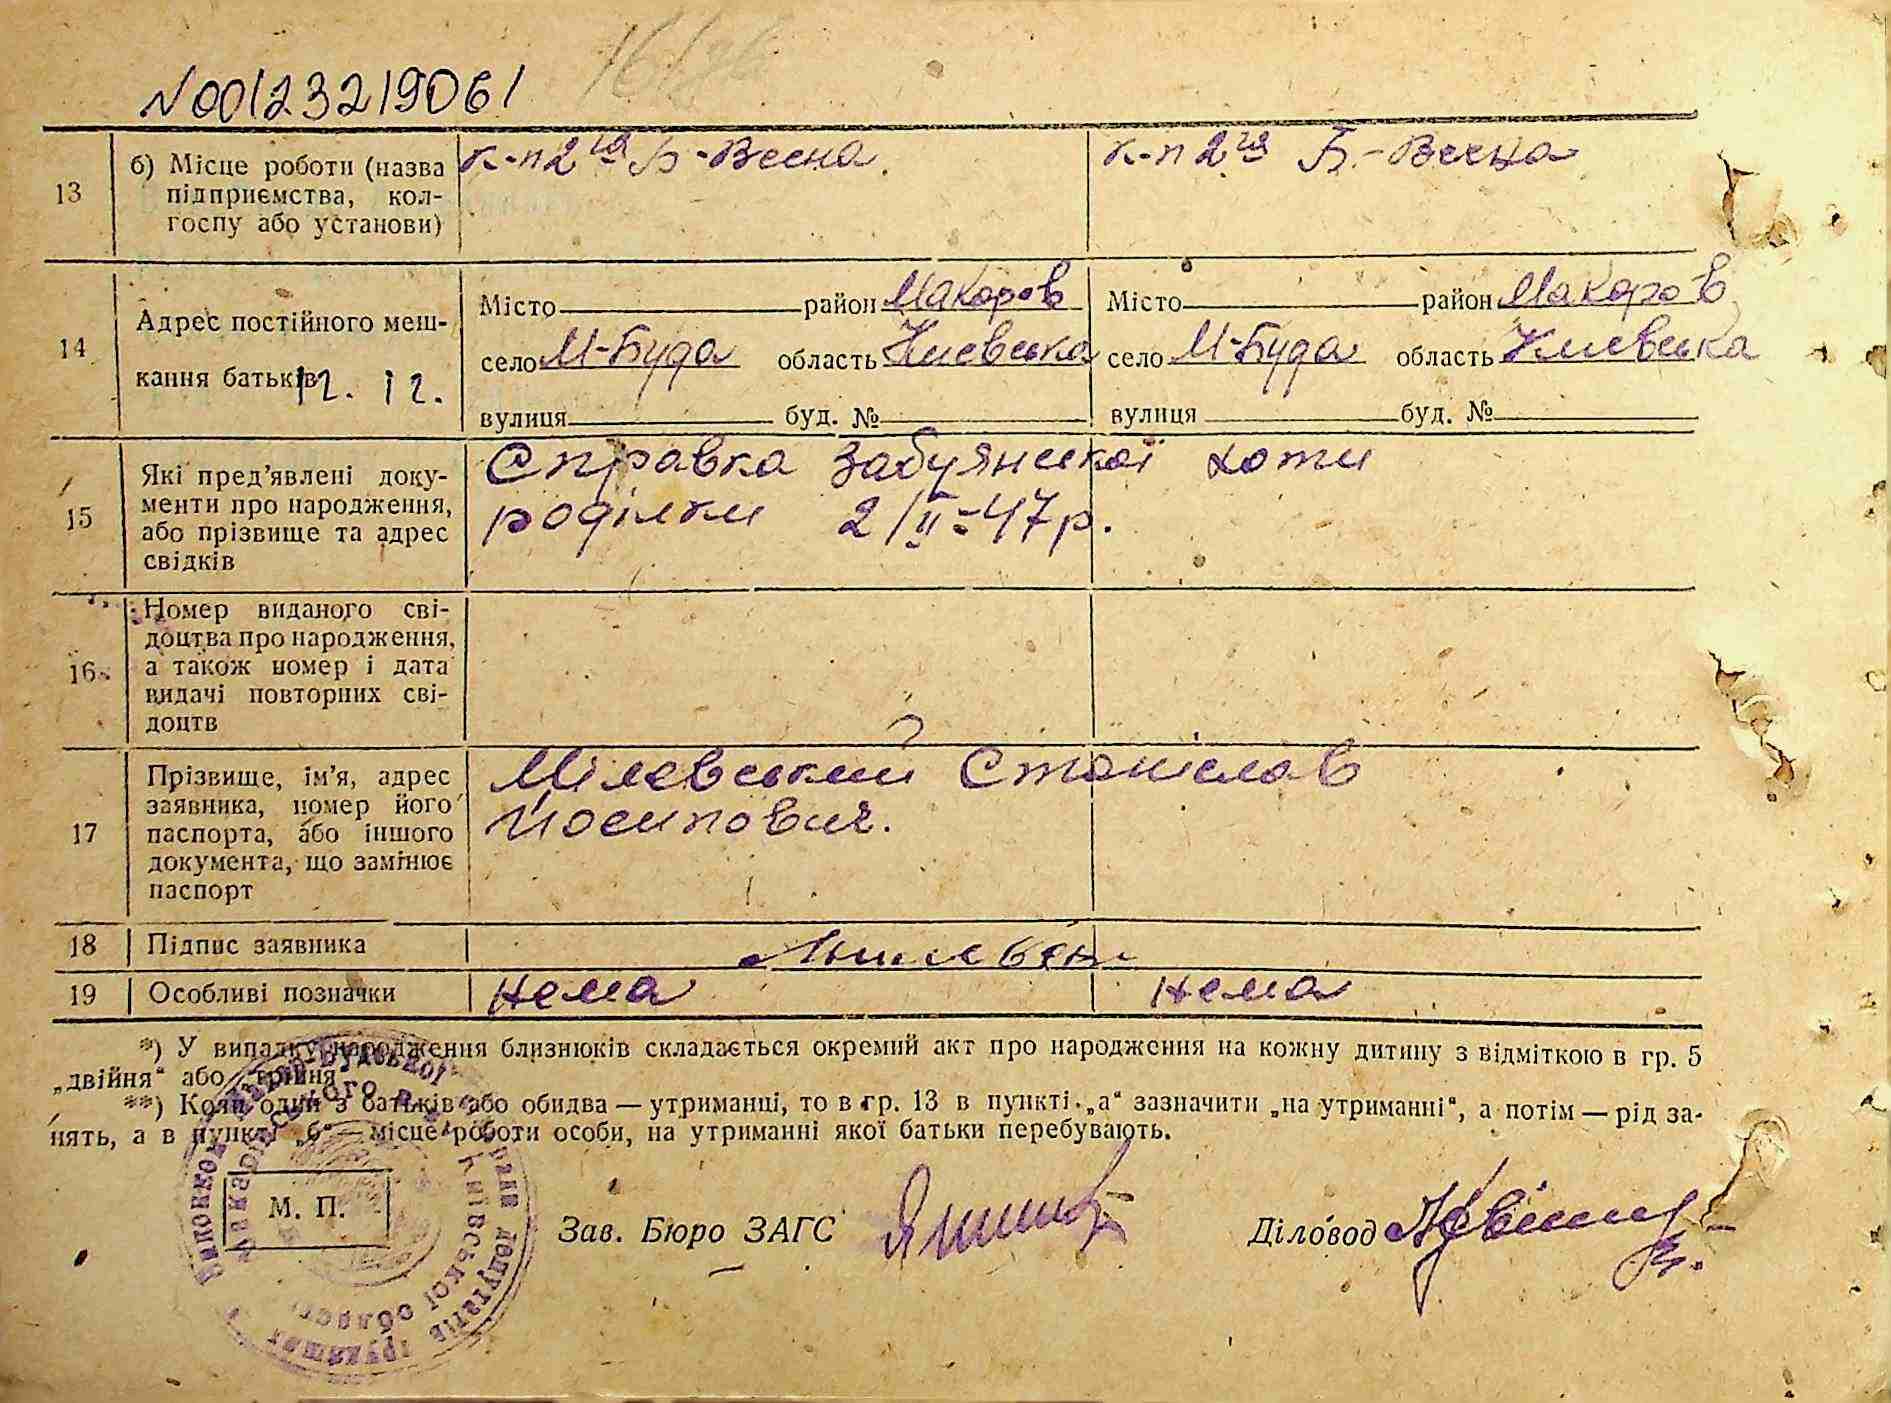 N00123219061
13 б) Місце роботи (назва підприємства, кол-госпу або установи) к-п 2га Б-Весна к-п 2га Б.-Весна
14 Адрес постійного меш-
кання батьків 12. 12.
Місто район Макаров Місто район Макаров
село М-Буда область Киевська село М-Буда область Киевська
вулиця буд. № вулиця буд. №
15 Які пред’явлені доку-
менти про народження,
або прізвище та адрес
свідків
Справка Забуянської хати
роділки 2/II-47р.
16 Номер виданого сві-
доцтва про народження,
а також номер і дата
видачі повторних сві-
доцтв
17 Прізвище, ім’я, адрес
заявника, номер його
паспорта, або іншого
документа, що замінює
паспорт
Мілевський Станіслав
Йосипович.
18 Підпис заявника
19 Особливі позначки Нема Нема
*) У випадку народження близнюків складається окремий акт про народження на кожну дитину з відміткою в гр. 5
„двійня“ або „трійня
**) Коли один з батьків або обидва — утриманці, то в гр. 13 в пункті „а“ зазначити „на утриманні“, а потім — рід за-
нять, а в пункті „б“ — місце роботи особи, на утриманні якої батьки перебувають.
М. П.
Зав. Бюро ЗАГС Діловод
Київської області
депутатів трудящих